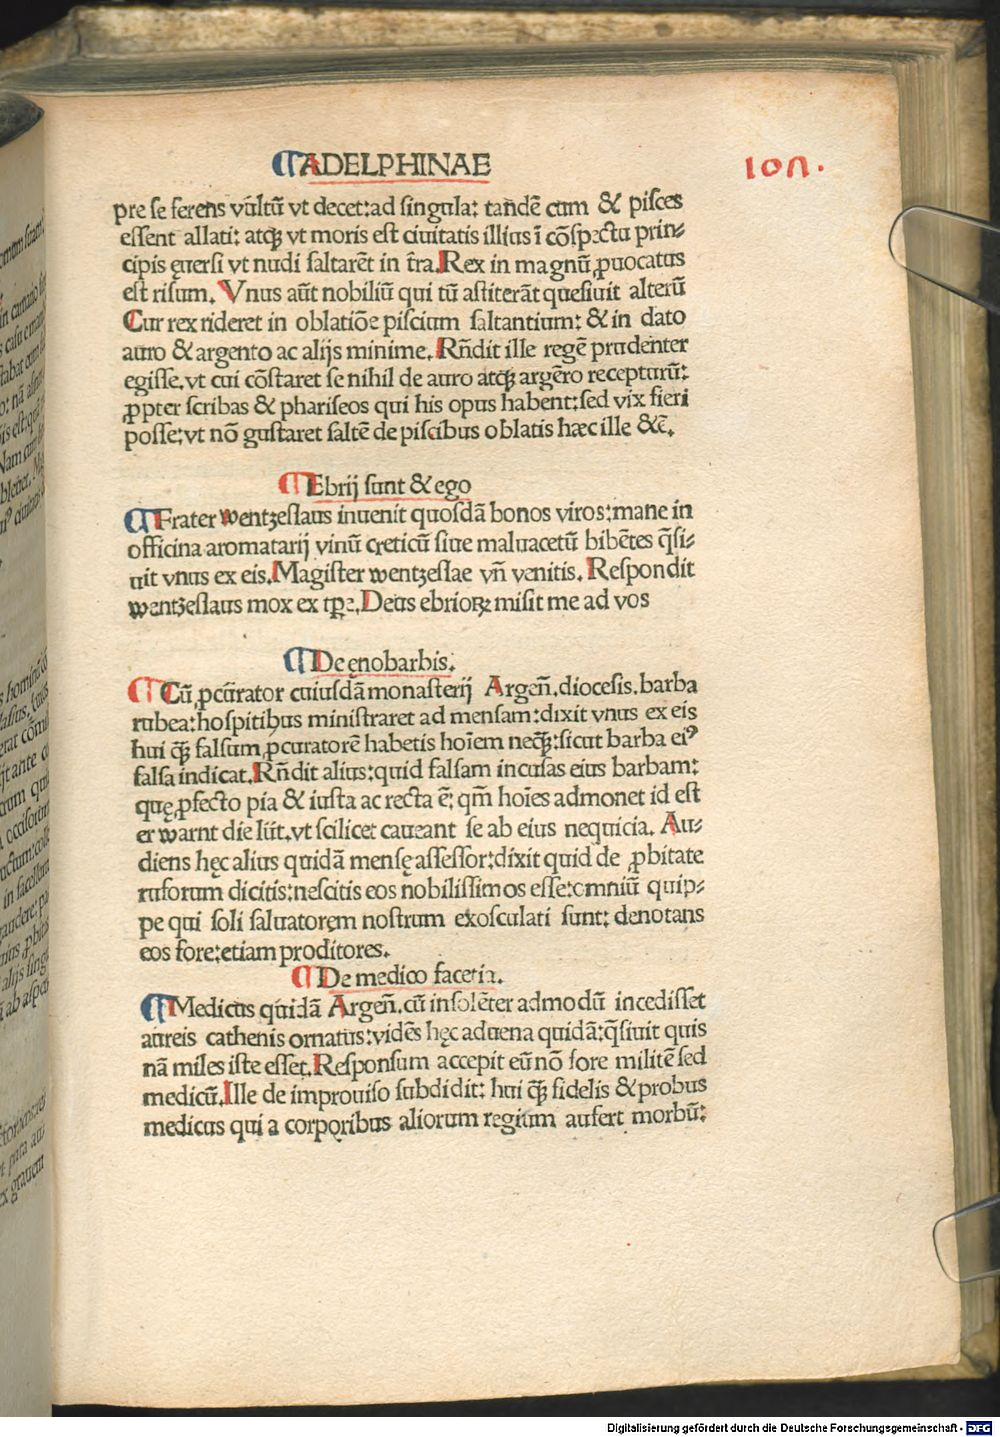 ADELPHINAE
107.
pre se ferens vultū vt decet:ad singula: tandē cum & pisces
essent allati: atqꝫ vt moris est ciuitatis illius ī cōspectu prin⸗
cipis ęuersi vt nudi saltarēt in t̄ra.Rex in magnū ꝓuocatus
est risum. Vnus aūt nobiliū qui tū astiterāt quesiuit alterū
Cur rex rideret in oblatiōe piscium saltantium: & in dato
auro & argento ac alijs minime.Rn̄dit ille regē prudenter
egisse.vt cui cōstaret se nihil de auro atqꝫ argēto recepturū:
ꝓpter scribas & phariseos qui his opus habent:sed vix fieri
posse:vt nō gustaret saltē de piscibus oblatis hæc ille &c̄.
Ebrij sunt & ego
Frater wentzeslaus inuenit quosdā bonos viros:mane in
officina aromatarij vinū creticū siue maluacetū bibētes q̄si⸗
uit vnus ex eis.Magister wentzeslae vn̄ venitis. Respondit
wentzeslaus mox ex tꝑe.Deus ebrioꝝ misit me ad vos
De ęnobarbis.
Cū ꝓcūrator cuiusdā monasterij Argen̄.diocesis.barba
rubea:hospitibus ministraret ad mensam:dixit vnus ex eis
hui qꝫ falsum ꝓcuratorē habetis hoīem neqꝫ:sicut barba eiꝰ
falsa indicat.Rn̄dit alius:quid falsam incusas eius barbam:
quę ꝓfecto pia & iusta ac recta ē: qm̄ hoīes admonet id est
er warnt die lüt.vt scilicet caueant se ab eius nequicia. Au⸗
diens hęc alius quidā mensę assessor:dixit quid de ꝓbitate
ruforum dicitis:nescitis eos nobilissimos esse:omniū quip⸗
pe qui soli saluatorem nostrum exosculati sunt: denotans
eos fore:etiam proditores.
De medico facetia.
Medicus quidā Argen̄.cū insolēter admodū incedisset
aureis cathenis ornatus:vidēs hęc aduena quidā:q̄siuit quis
nā miles iste esset.Responsum accepit eū nō fore militē sed
medicū.Ille de improuiso subdidit: hui qꝫ fidelis & probus
medicus qui a corporibus aliorum regium aufert morbū:
Digitalisierung gefördert durch die Deutsche Forschungsgemeinschaft - DFG